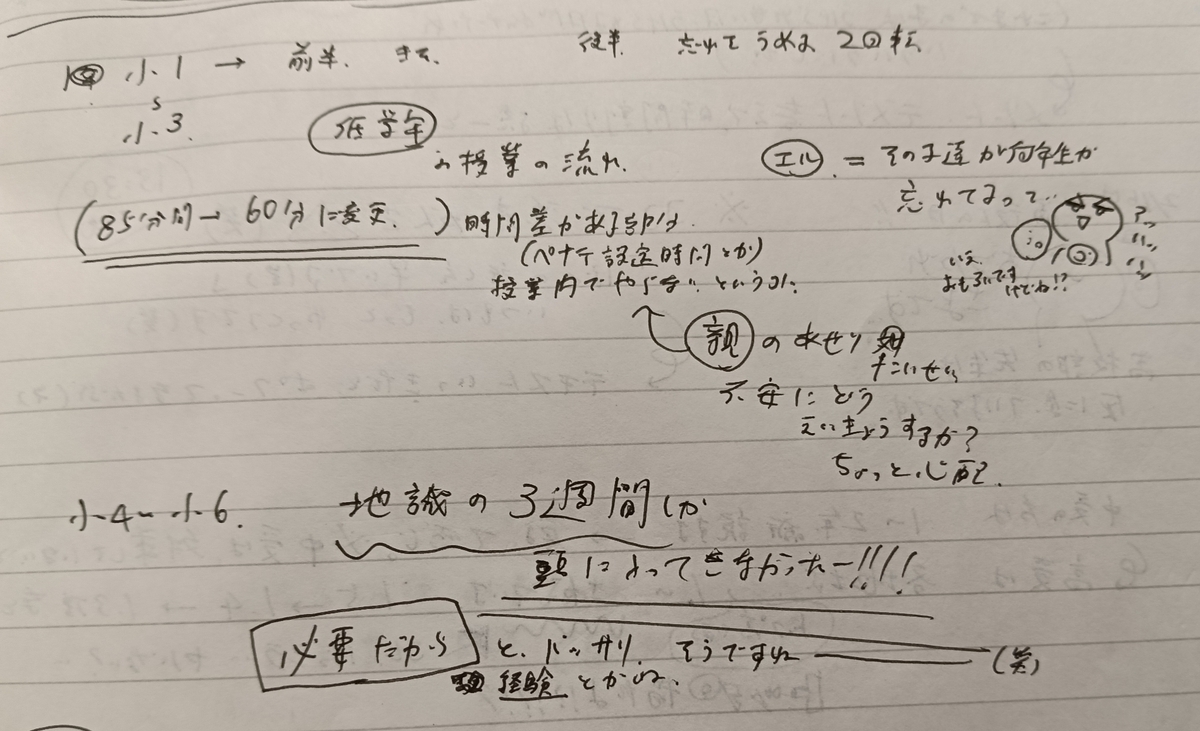 小1 → 前半、 後半 忘れて うめる 2回転
小3
低学年
の授業の流れ
エル = その子達が何年生か
忘れてまって…
(85分間→60分に変更)
時間差がある部分は
(ペナテ設定時間とか)
授業内でやらない というのに
いえ、
おもろいです
けどね!?
親のあせり
不安にどう
えいきょうするか?
ちょっと心配
小4〜小6. →地誌の3週間しか
頭に入ってきなかったー!!!!
必要だから と、バッサリ、そうですね (笑)
経験とかね、